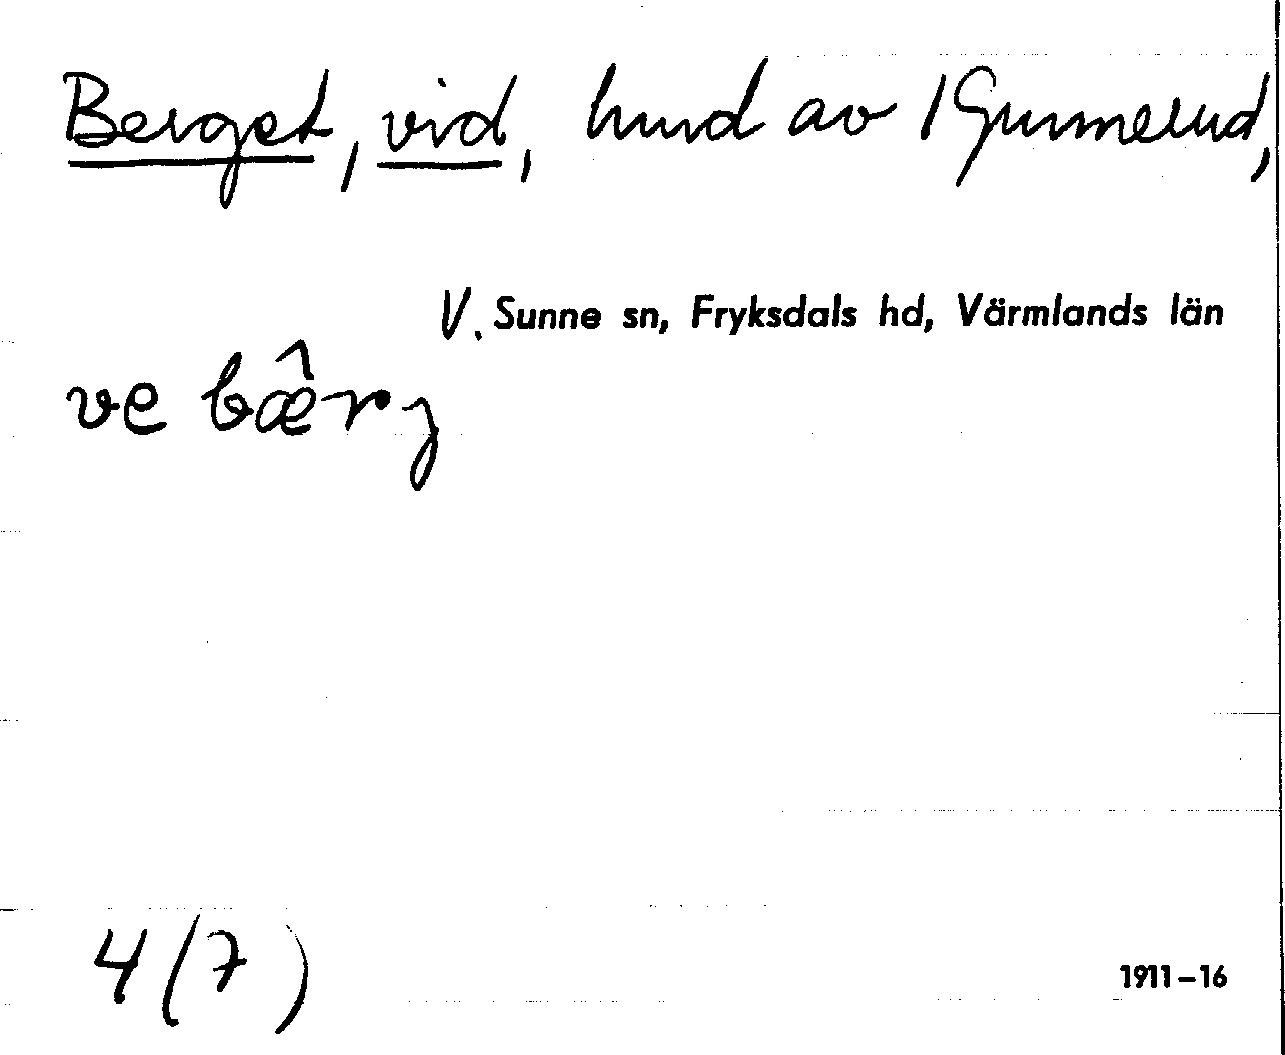 Berget, vid, hmd av 1 Gunnerud,
V. Sunne sn, Fryksdals hd, Värmlands län
ve bæ̂rj
4 (7)
1911-16